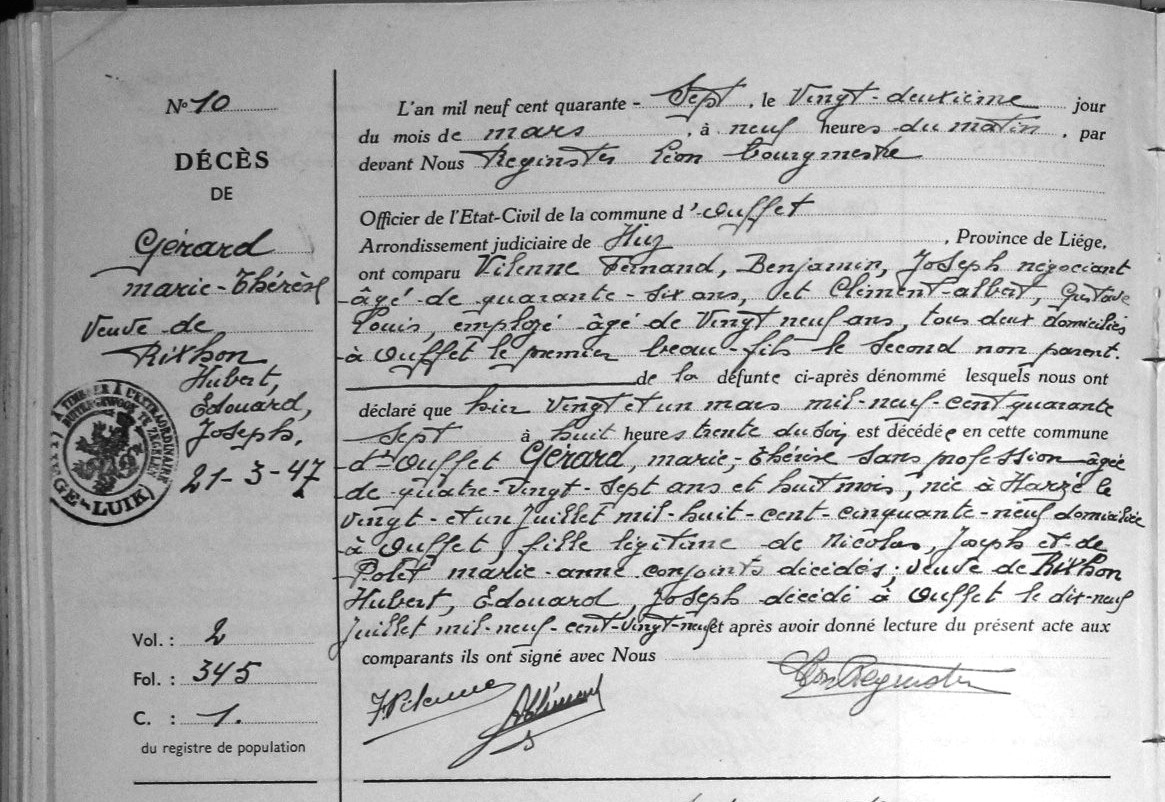 N° 10
DÉCÈS
DE
Gérard
marie-Thérèse
Veuve de
Rixhon
Hubert,
Edouard,
Joseph.
21-3-47
À TIMBRER À L'EXTRAORDINAIRE
LUIK)
Vol. : 2
Fol. : 345
C. : 1.
du registre de population
L'an mil neuf cent quarante - Sept, le Vingt-deuxième jour
du mois de mars, à neuf heures du matin, par
devant Nous Reginster Léon bourgmestre
Officier de l'Etat-Civil de la commune d'Ouffet
Arrondissement judiciaire de Huy, Province de Liége,
ont comparu Vilenne Fernand, Benjamin, Joseph négociant
âgé de quarante-six ans, et Climent albert, Gustave
Louis, employé âgé de Vingt neuf ans, tous deux domiciliés
à Ouffet le premier beau-fils le second non parent.
de la défunte ci-après dénommé lesquels nous ont
déclaré que hier Vingt et un mars mil-neuf-cent quarante
sept à huit heures trente du soir est décédée en cette commune
d'Ouffet Gérard, marie-Thérèse sans profession âgée
de quatre-Vingt-Sept ans et huit mois, née à Harzé le
Vingt-et un Juillet mil-huit-cent-cinquante-neuf domiciliée
à Ouffet, fille légitime de Nicolas, Joseph et de
Polet marie-anne conjoints décédés; Veuve de Rixhon
Hubert, Edouard, Joseph décédé à Ouffet le dix-neuf
Juillet mil-neuf-cent-Vingt-neuf et après avoir donné lecture du présent acte aux
comparants ils ont signé avec Nous
F. Vilenne
Léon Reginster